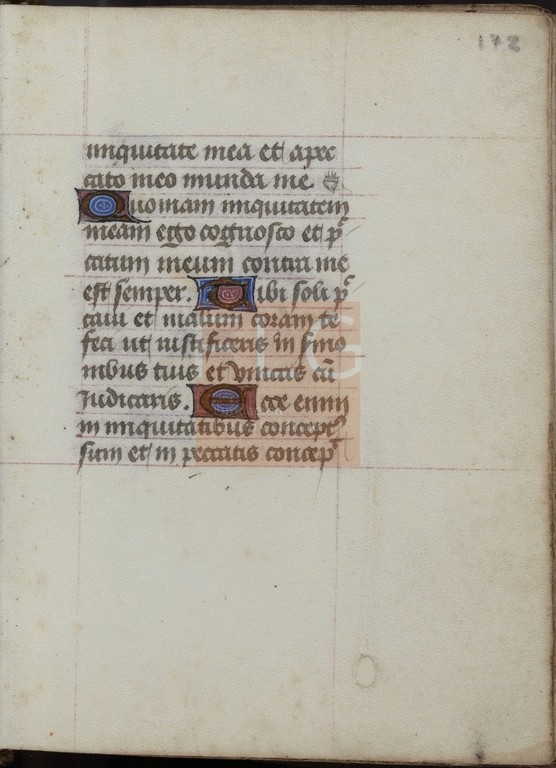 172
iniquitate mea et a pec
cato meo munda me.
Quoniam iniquitatem
meam ego cognosco et p͛
catum meum contra me
est semper. Tibi soli p͛
caui et malum coram te
feci ut iustificeris in smo
nibus tuis et vincas cū
Iudicaris. Ecce enim
in iniquitatibus conceptꝰ
sum et in peccatis concep͛